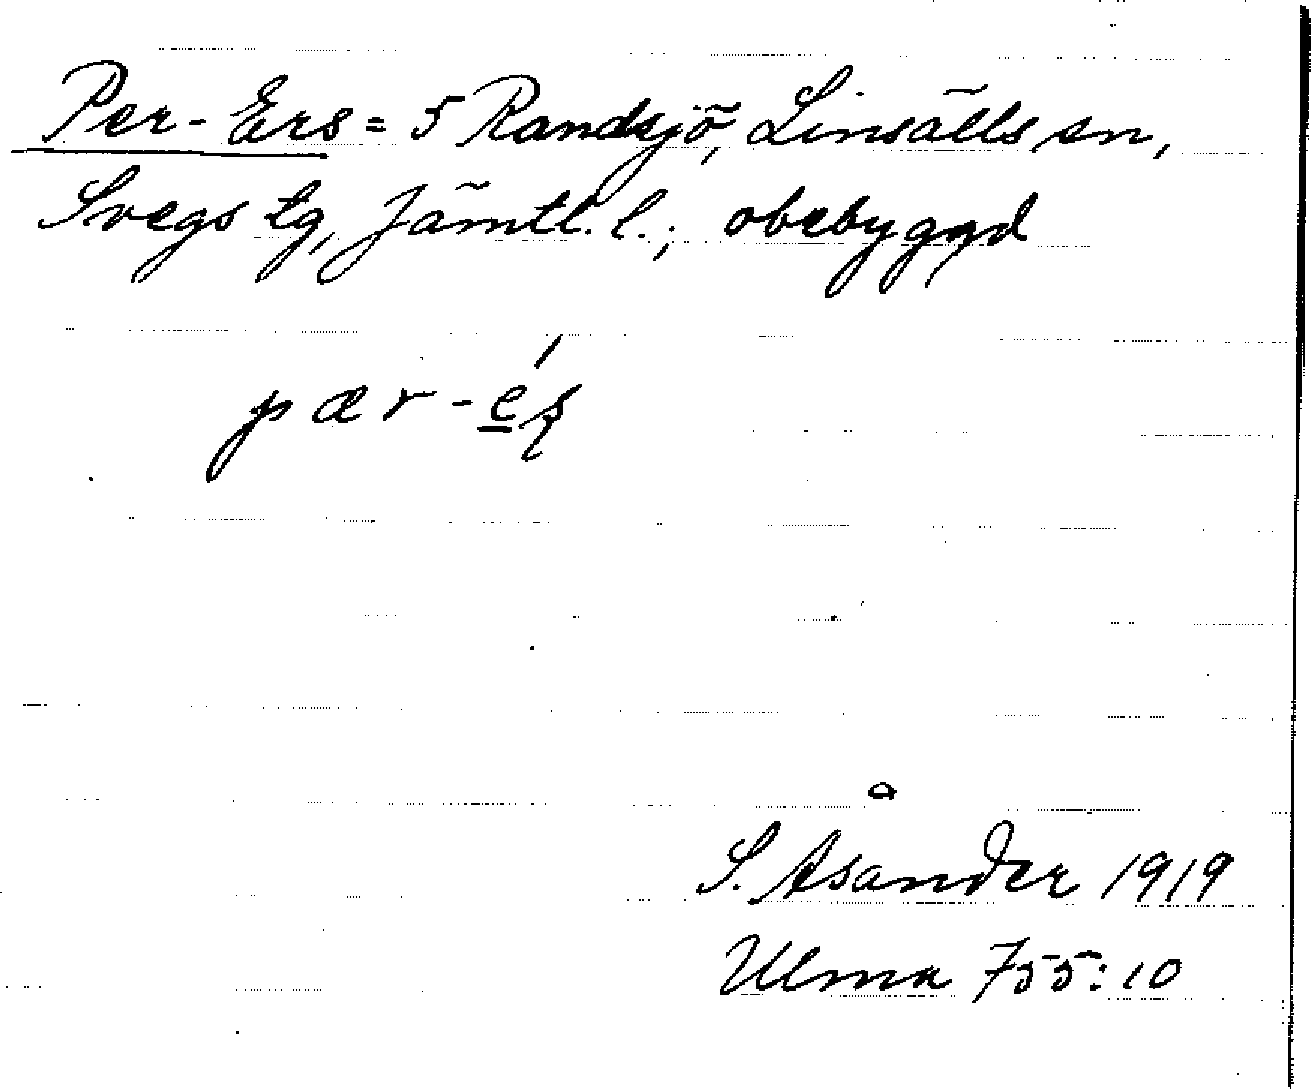 Per-Ers = 5 Randsjö, Linsälls sn,
Svegs tg, Jämtl. l.; obebyggd
pær-é̲ʂ
S. Åsander 1919
Ulma 755:10